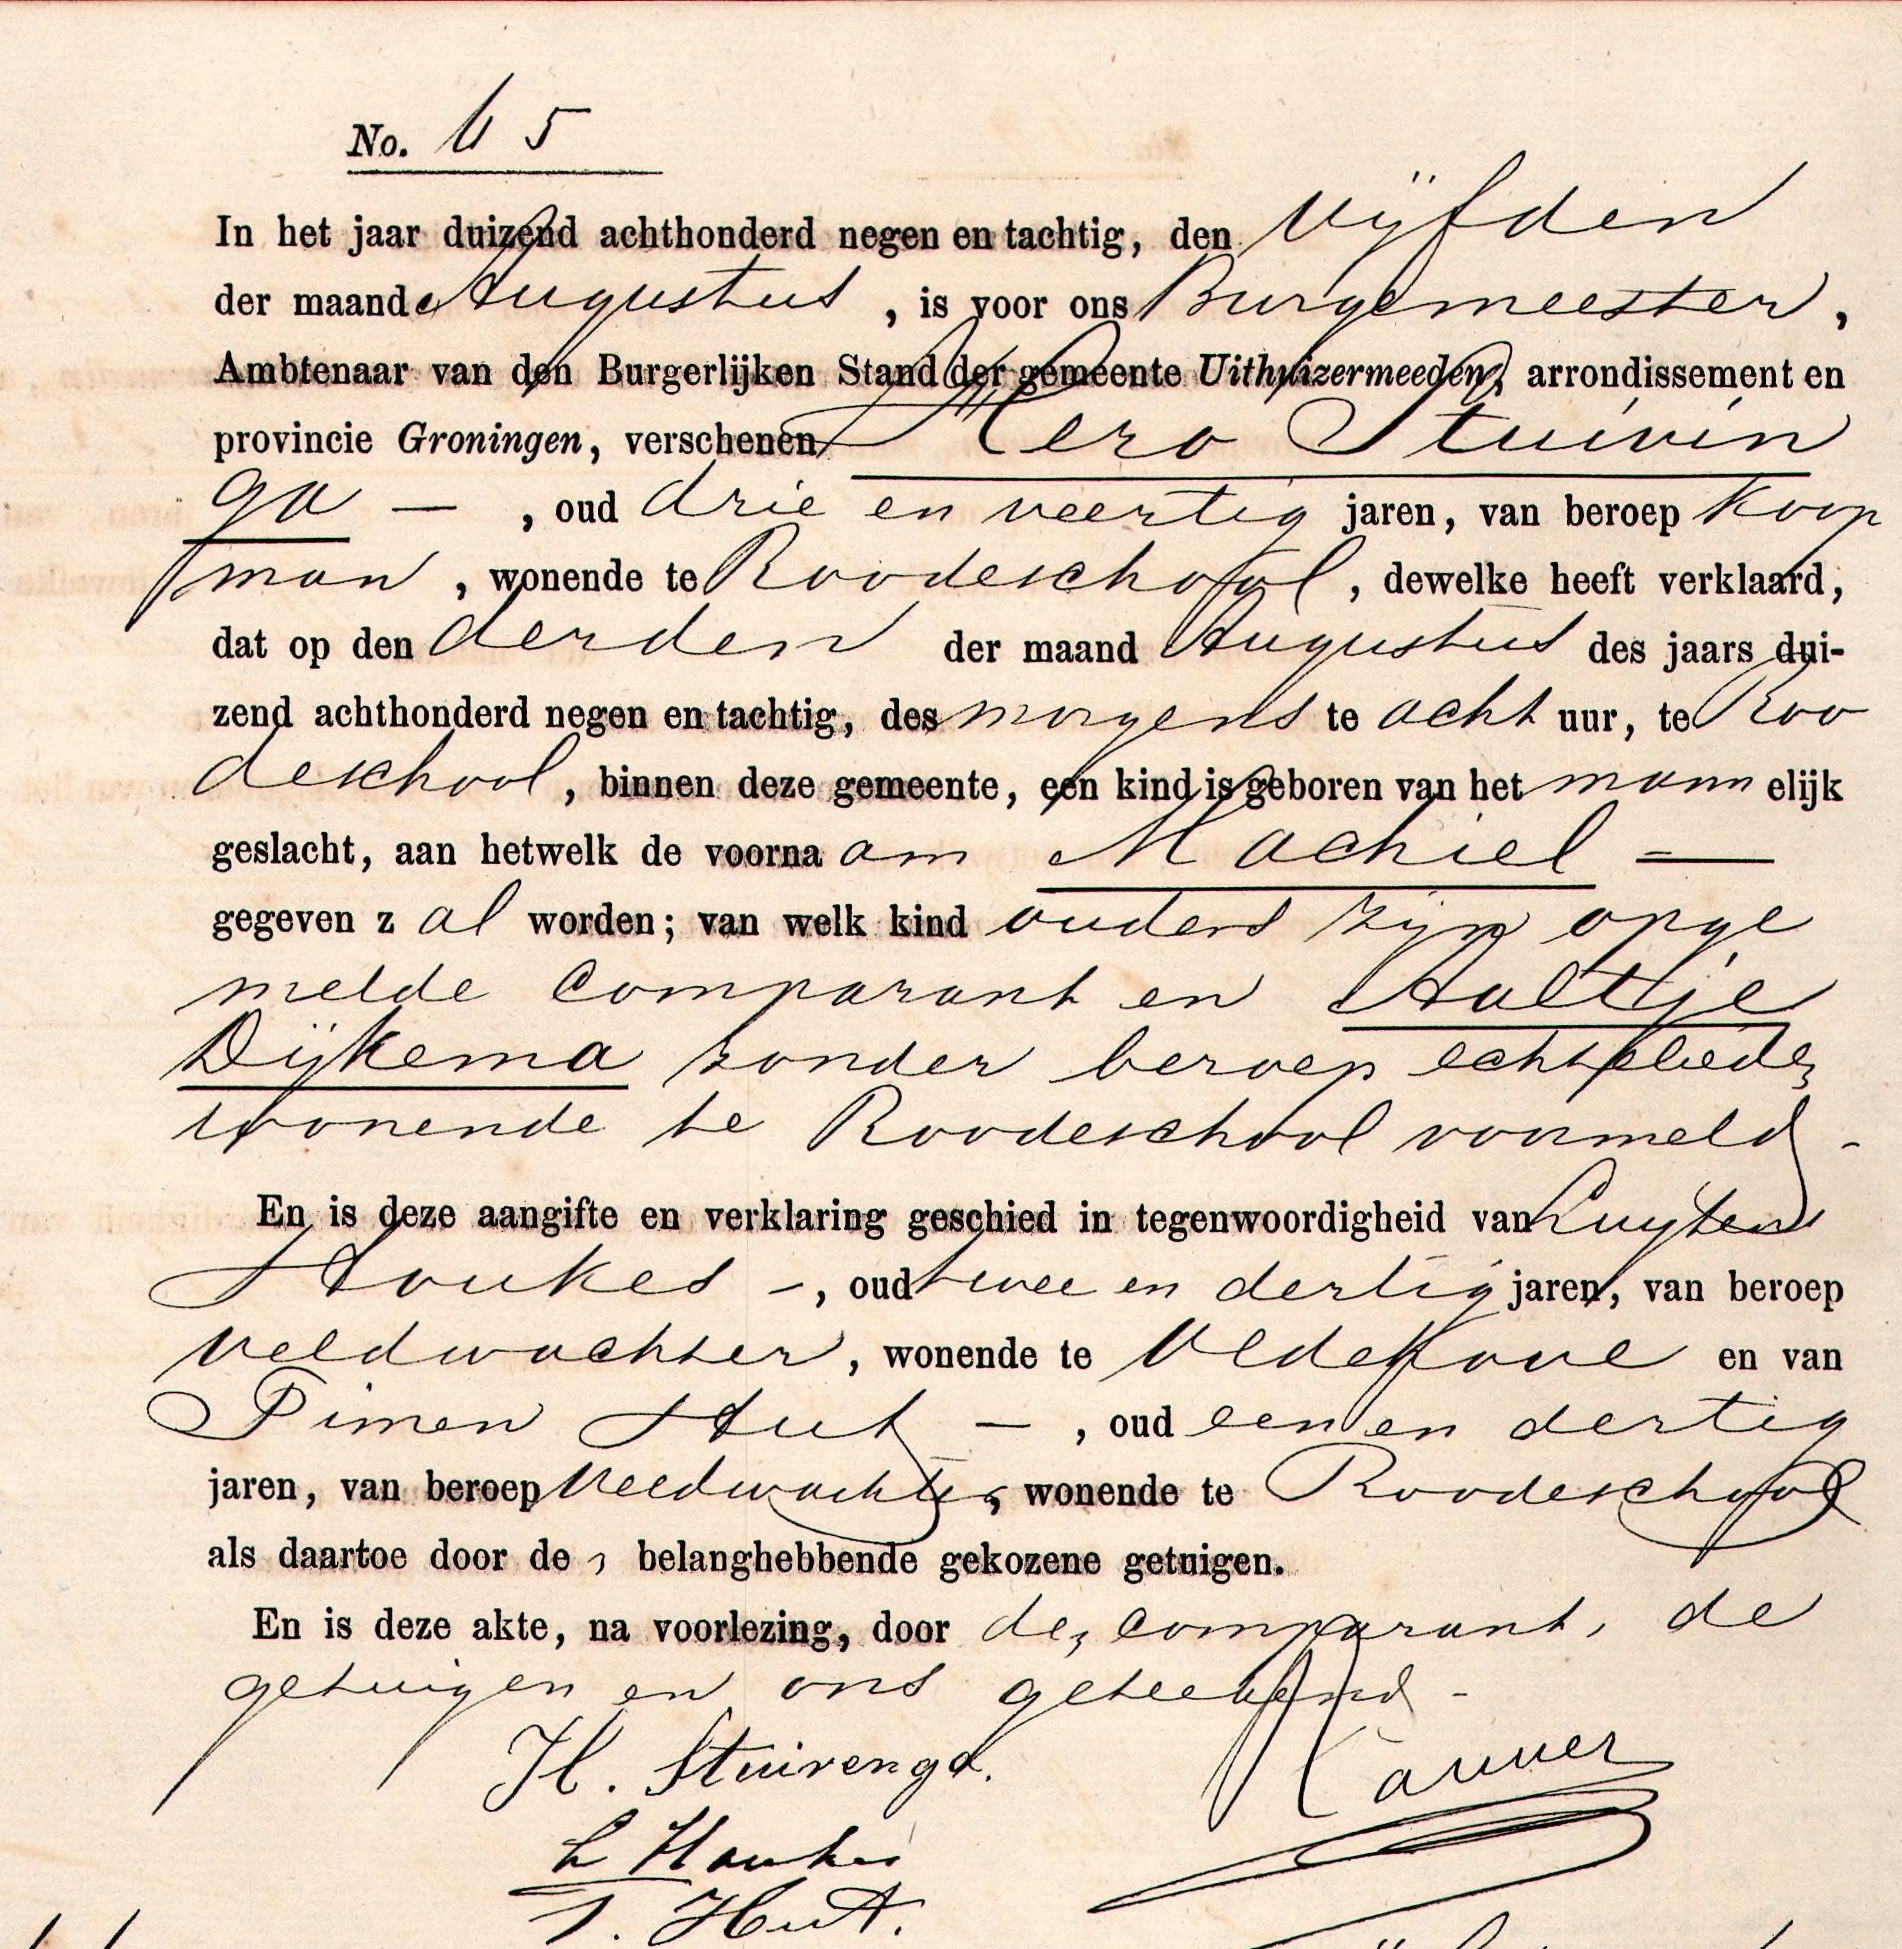 No. 65
In het jaar duizend achthonderd negen en tachtig, den vijfden
der maand Augustus, is voor ons Burgemeester,
Ambtenaar van den Burgerlijken Stand der gemeente Uithuizermeeden, arrondissement en
provincie Groningen, verschenen Hero Stuivin
ga —, oud drie en veertig jaren, van beroep koop
man, wonende te Roodeschool, dewelke heeft verklaard,
dat op den derden der maand Augustus des jaars dui-
zend achthonderd negen en tachtig, des morgens te acht uur, te Roo
deschool, binnen deze gemeente, een kind is geboren van het mannelijk
geslacht, aan hetwelk de voornaam Machiel —
gegeven zal worden; van welk kind ouders zijn opge
melde comparant en Aaltje
Dijkema zonder beroep echtelieden
wonende te Roodeschool voormeld -
En is deze aangifte en verklaring geschied in tegenwoordigheid van Luytens
Houkes -, oud twee en dertig jaren, van beroep
veldwachter, wonende te en van
Pimen Hut —, oud een en dertig
jaren, van beroep veldwachter, wonende te Roodeschool
als daartoe door de belanghebbende gekozene getuigen.
En is deze akte, na voorlezing, door den comparant, de
getuigen en ons geteekend -
H. Stuivenga.
L Houkes
T. Hut.